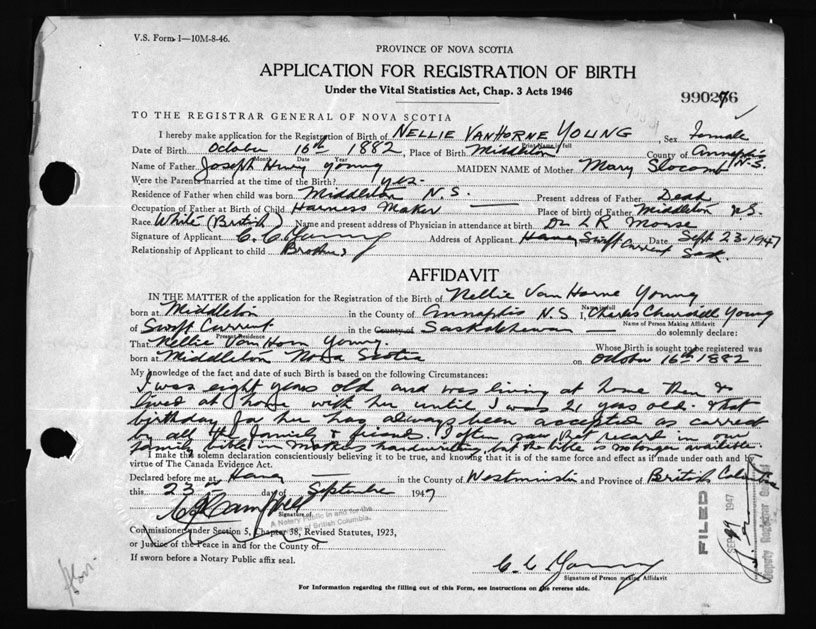 V.S. Form 1—10M-8-46.
PROVINCE OF NOVA SCOTIA
APPLICATION FOR REGISTRATION OF BIRTH
Under the Vital Statistics Act, Chap. 3 Acts 1946
990276
TO THE REGISTRAR GENERAL OF NOVA SCOTIA
I hereby make application for the Registration of Birth of NELLIE VANHORNE YOUNG Sex Female
Print Name in full
Date of Birth October 16th 1882, Place of Birth Middleton County of Annapolis N.S.
Month Date Year
Name of Father Joseph Henry Young MAIDEN NAME of Mother Mary Slocomb
Name in full
Were the Parents married at the time of the Birth? yes.
Residence of Father when child was born Middleton N.S. Present address of Father Dead
Occupation of Father at Birth of Child Harness Maker — Place of birth of Father Middleton N.S.
Race White (British) Name and present address of Physician in attendance at birth Dr. S R Morse
Signature of Applicant C. C. Young Address of Applicant Haney Swift Current Sask. Date Sept 23-1947
Relationship of Applicant to child Brother
AFFIDAVIT
IN THE MATTER of the application for the Registration of the Birth of Nellie Van Horne Young
born at Middleton in the County of Annapolis N.S I, Charles Churchill Young
Name of Person Making Affidavit
of Swift Current in the County of Saskatchewan — do solemnly declare:
Present Residence
That Nellie Van Horn Young. Whose Birth is sought to be registered was
born at Middleton Nova Scotia on October 16th 1882
My knowledge of the fact and date of such Birth is based on the following Circumstances:
I was eight years old and was living at home then &
lived at home with her until I was 21 years old. That
birthday for her has always been accepted as correct
by all the family & friends. I often saw that record in our
family bible in Mother's handwriting but the bible is no longer available.
I make this solemn declaration conscientiously believing it to be true, and knowing that it is of the same force and effect as if made under oath and by
virtue of The Canada Evidence Act.
Declared before me at Haney — in the County of Westminster and Province of British Columbia
this 23 day of September 1947
Signature of
A Notary Public in and for the
of British Columbia.
Commissioner under Section 5, Chapter 38, Revised Statutes, 1923,
or Justice of the Peace in and for the County of
If sworn before a Notary Public affix seal.
FILED
SEP 29 1947
Deputy Registrar General
C. C. Young
Signature of Person making Affidavit
For Information regarding the filling out of this Form, see instructions on the reverse side.